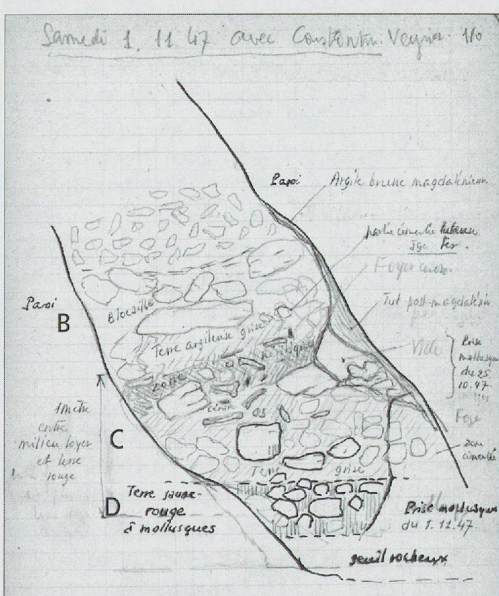 Samedi 1. 11. 47 avec Constantin. Veyrier. 110
Paroi
Argile brune magdalénienne
partie cimentée
Age. Fer.
Foyer
Tuf post-magdalénien
Paroi
B
Blocaille
Terre argileuse grise
Prise
mollusques
du 25.
10. 47
zone
os
C
1 mètre
entre
milieu foyer
et terre
rouge
zone
cimentée
Terre grise
D
Terre jaune-
rouge
à mollusques
Prise mollusques
du 1. 12. 47
seuil rocheux